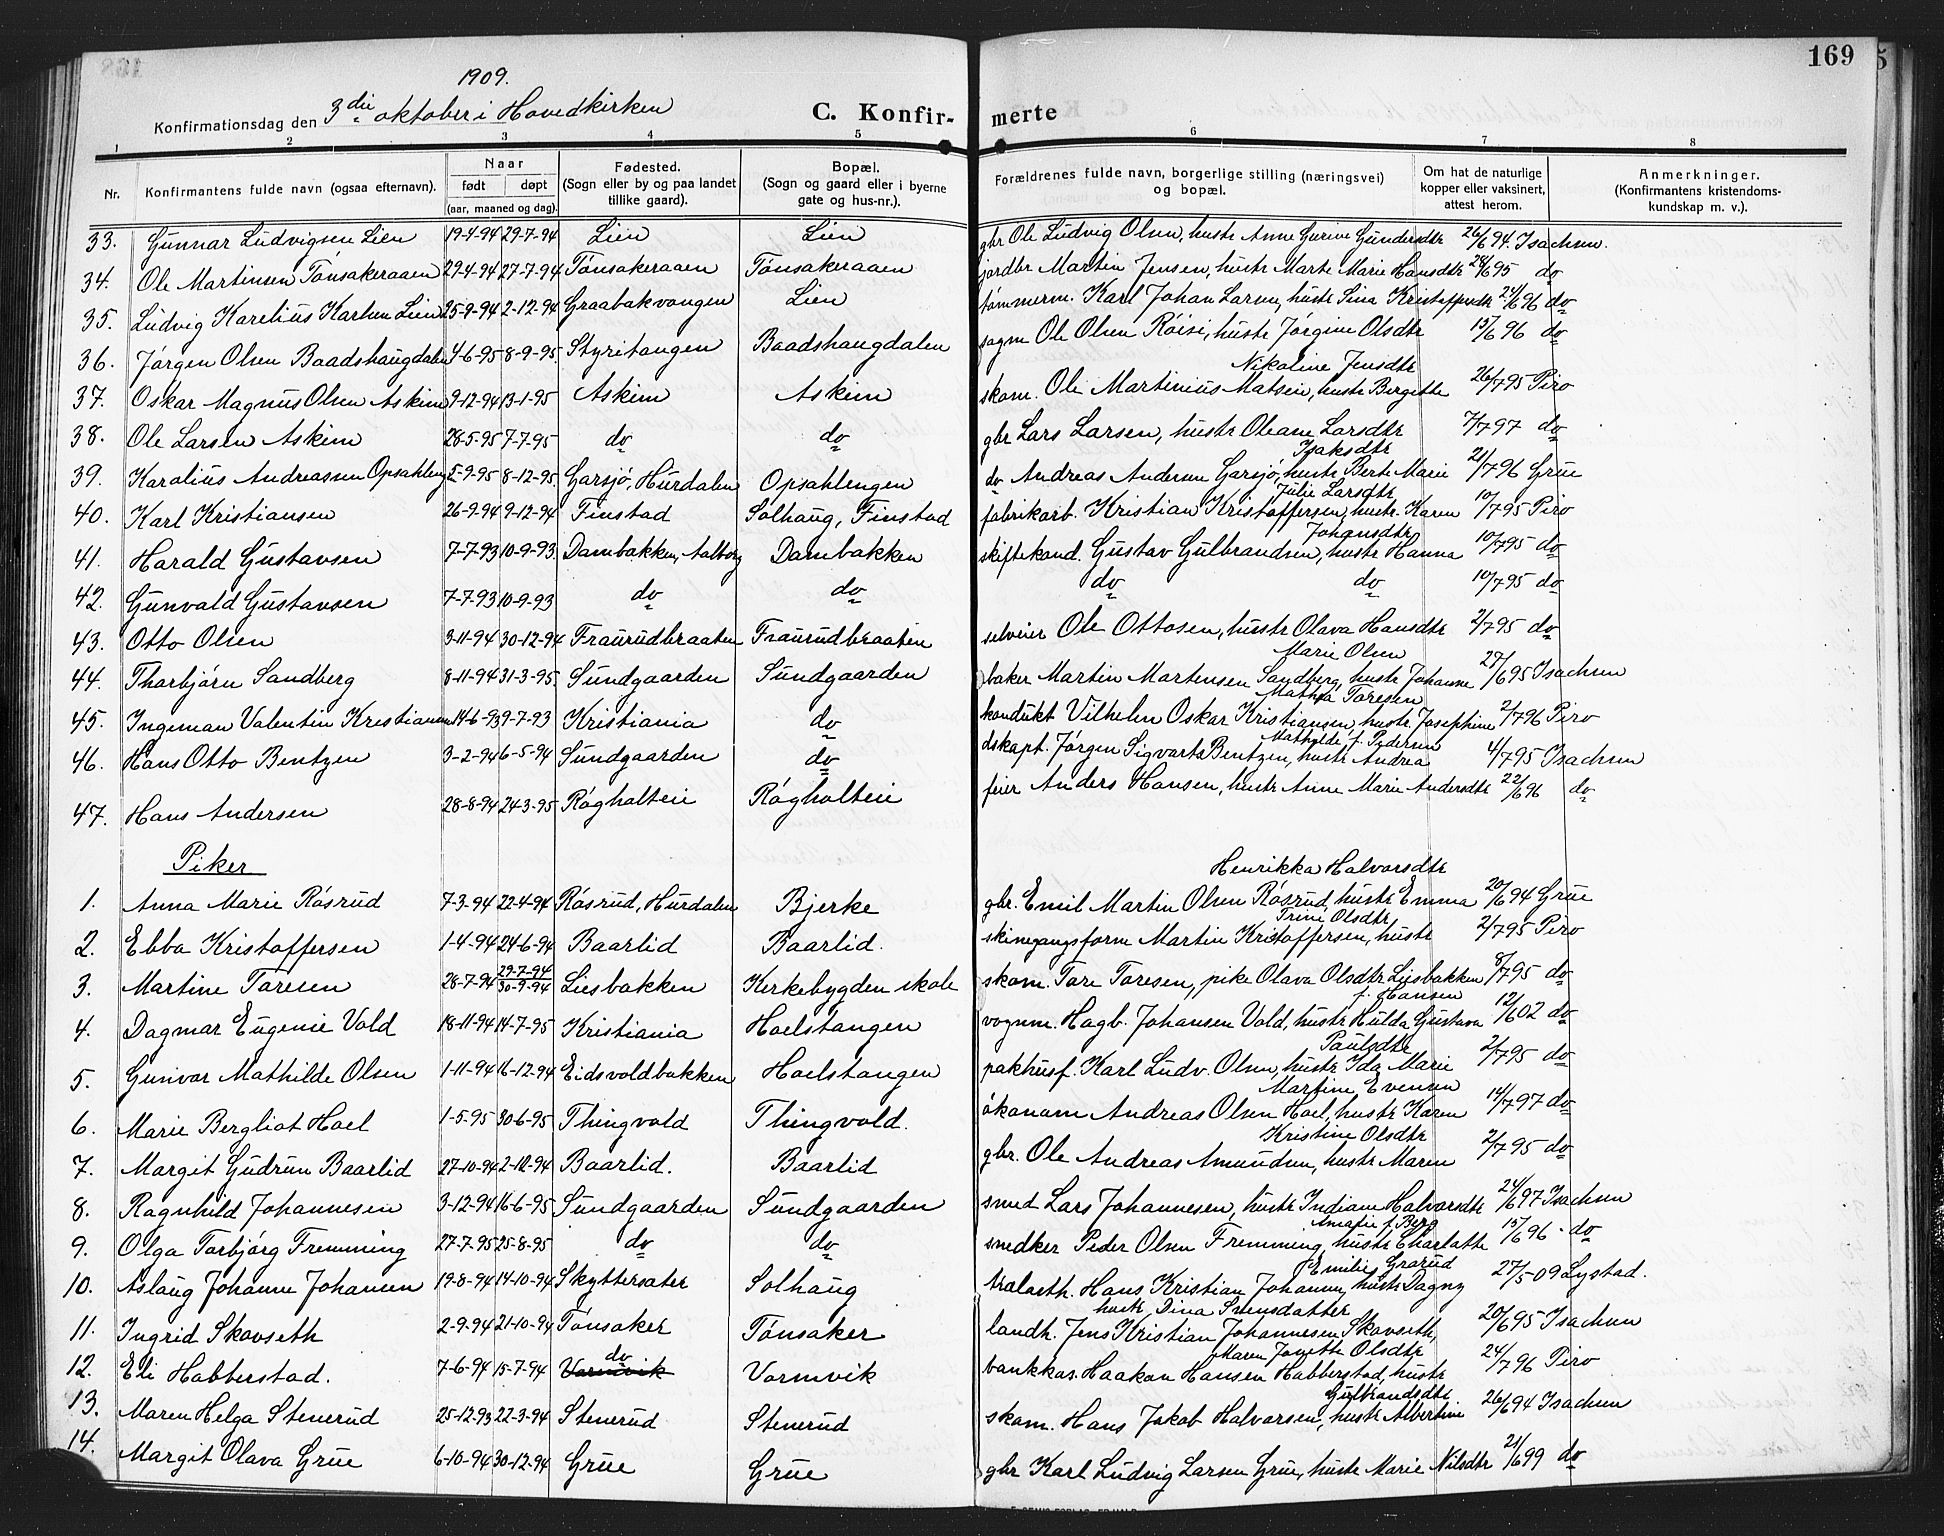 169
1909.
Konfirmationsdag den 3die oktober i Hovedkirken
C. Konfir- merte
1 2 3 4 5 6 7 8
Nr. Konfirmantens fulde navn (ogsaa efternavn). Naar født døpt (aar, maaned og dag). Fødested. (Sogn eller by og paa landet tillike gaard). Bopæl. (Sogn og gaard eller i byerne gate og hus-nr.). Forældrenes fulde navn, borgerlige stilling (næringsvei) og bopæl. Om hat de naturlige kopper eller vaksinert, attest herom. Anmerkninger. (Konfirmantens kristendoms- kundskap m. v.).
33. Gunnar Ludvigsen Lien 19-4-94 29-7-94 Lien Lien gbr Ole Ludvig Olsen, hustr Anne Gurine Gundersdtr 26/6 94. Isachsen.
34. Ole Martinsen Tønsakeraaen 29-4-94 27-7-94 Tønsakeraaen Tønsakeraaen jordbr Martin Jensen, hustr Marte Marie Hansdtr 28/6 95 do
35. Ludvig Karelius Karlsen Lien 25-9-94 2-12-94 Graabakvangen Lien tømmerm. Karl Johan Larsen, hustr Lina Kristoffersdtr 24/6 96 do
36. Jørgen Olsen Baadshaugdalen 4-6-95 8-9-95 Styritangen Baadshaugdalen sagm Ole Olsen Røisi, hustr Jørgine Olsdtr 15/6 96 do
Nikoline Jensdtr
37. Oskar Magnus Olsen Askim 9-12-94 13-1-95 Askim Askim skom. Ole Martinius Matsen, hustr Bergitte 26/7 95 Piro
38. Ole Larsen Askim 28-5-95 7-7-95 do do gbr Lars Larsen, hustr Oleane Larsdtr 7/7 97 do
Isaksdtr
39. Karolius Andreassen Opsahleng 5-9-95 8-12-95 Garsjø, Hurdalen Opsahlengen do Andreas Andersen Garsjø, hustr Berte Marie 21/7 96 Grue
Julie Larsdtr
40. Karl Kristiansen 26-9-94 9-12-94 Finstad Solhaug, Finstad fabrikarb. Kristian Kristoffersen, hustr. Karen 10/7 95 Piro
Johansdtr
41. Harald Gustavsen 7-7-93 10-9-93 Dambakken, Aalborg Dambakken skiftekond. Gustav Gulbrandsen, hustr Hanna 10/7 95 do
42. Gunvald Gustavsen 7-7-93 10-9-93 do do do do 10/7 95 do
43. Otto Olsen 3-11-94 30-12-94 Fraurudbraaten Fraurudbraaten selveier Ole Ottosen, hustr Olava Hansdtr 2/7 95 do
Marie Olsen
44. Thorbjørn Sandberg 8-11-94 31-3-95. Sundgaarden Sundgaarden baker Martin Martensen Sandberg, hustr Johanne 27/6 95 Isachsen
Mathea Toresen
45. Ingeman Valentin Kristiansen 14-6-93 9-7-93 Kristiania do kondukt Vilhelm Oskar Kristiansen, hustr. Josephine 2/7 96 Piro
Mathilde f. Pedersen
46. Hans Otto Bentzen 3-2-94 6-5-94 Sundgaarden do dskapt. Jørgen Sigvarts Bentzen, hustr Andrea 4/7 95 Isachsen
47. Hans Andersen 28-8-94 24-3-95 Røgholteie Røgholteie feier Anders Hansen, hustr Anne Marie Andersdtr 22/6 96 do
Piker
Henrikka Halvorsdtr
1. Anna Marie Røsrud 7-3-94 22-4-94 Røsrud, Hurdalen Bjerke gbr. Emil Martin Olsen Røsrud, hustr Emma 20/6 94 Grue
Trine Olsdtr
2. Ebba Kristoffersen 1-4-94 24-6-94 Baarlid Baarlid. skinegangsform Martin Kristoffersen, hustr 2/7 95 Piro
3. Martine Toresen 28-7-94 29-7-94 30-9-94 Liesbakken Kirkebygden skole skom. Tore Toresen, pike Olava Olsdtr Liesbakken 8/7 95 do
f. Hansen
4. Dagmar Eugenie Vold 18-11-94 14-7-95 Kristiania Hoelstangen vognm. Hagb. Johansen Vold, hustr Hulda Gustava 12/6 02 do
Paulsdtr
5. Gunvor Mathilde Olsen 1-11-94 16-12-94 Eidsvoldbakken Hoelstangen pakhusf. Karl Ludv. Olsen, hustr Ida Marie 2/7 95 do
Martine Evensen
6. Marie Bergliot Hoel 1-5-95 30-6-95 Thingvold Thingvold. økonom Andreas Olsen Hoel, hustr Karen 14/7 97 do
Kristine Olsdtr
7. Margit Gudrun Baarlid 27-10-94 2-12-94 Baarlid. Baarlid gbr. Ole Andreas Amundsen, hustr Maren 2/7 95 do
8. Ragnhild Johannesen 3-12-94 16-6-95 Sundgaarden Sundgaarden smed Lars Johannesen, hustr Indiane Halvorsdtr 24/6 97 Isachsen
Amalie f. Berg
9. Olga Torbjørg Fremming 27-7-95 25-8-95 do do snedker Peder Olsen Fremming, hustr Charlotte 15/6 96 - do
Emilie Grorud
10. Aslaug Johanne Johansen 19-8-94 14-10-94 Skyttersater Solhaug tralasth. Hans Kristian Johansen, hustr Dagny 27/5-09 Lystad.
hustr. Dina Svensdatter
11. Ingrid Skovseth 2-9-94 21-10-94 Tønsaker Tønsaker landh. Jens Kristian Johannesen Skovseth, 20/6 95 Isachsen
Maren Jonette Olsdtr
12. Eli Habberstad. 7-6-94 15-7-94 do Vormvik Vormvik bankkas. Haakon Hansen Habberstad, hustr 24/7 96 Piro
Gulbrandsdtr
13. Maren Helga Stenerud 25-12-93 22-3-94 Stenerud Stenerud skom. Hans Jakob Halvorsen, hustr Albertine 26/6 94 Isachsen
14. Margit Olava Grue 6-10-94 30-12-94 Grue Grue gbr Karl Ludvig Larsen Grue, hustr Marie Nilsdtr 21/6 99 do